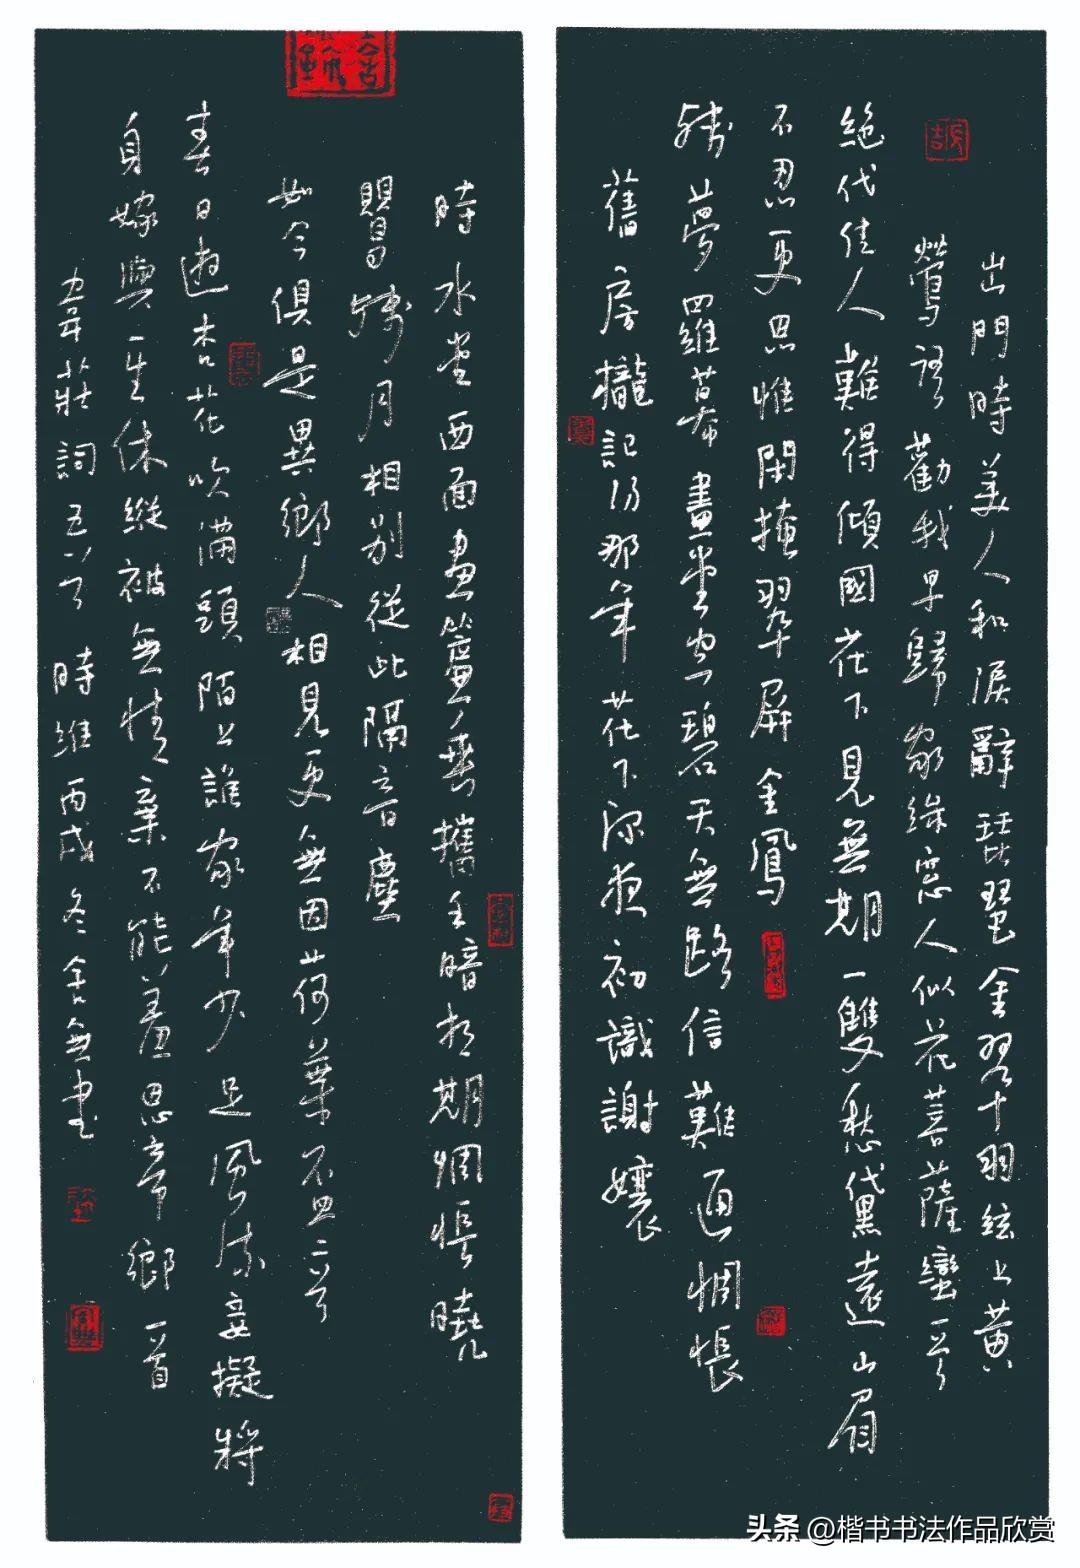 出門時美人和淚辭琵琶金翠十羽絃上黃
鶯語勸我早歸家綠窓人似花菩薩蠻一首
絕代佳人難得傾國花下見無期一雙愁黛遠山眉
不忍更思惟閑掩翠屏金鳳
殘夢羅幕畫堂空碧天無路信難通惆悵
舊房櫳記得那年花下深夜初識謝孃
時水堂西面畫簾垂攜手暗相期惆悵曉
鶯殘月相別從此隔音塵
如今俱是異鄉人相見更無因荷葉杯二首
春日遊杏花吹滿頭陌上誰家年少足風流妾擬將
身嫁與一生休縱被無情棄不能羞思帝鄉一首
韋莊詞五首時維丙戌冬舍無書
头条 @楷书书法作品欣赏